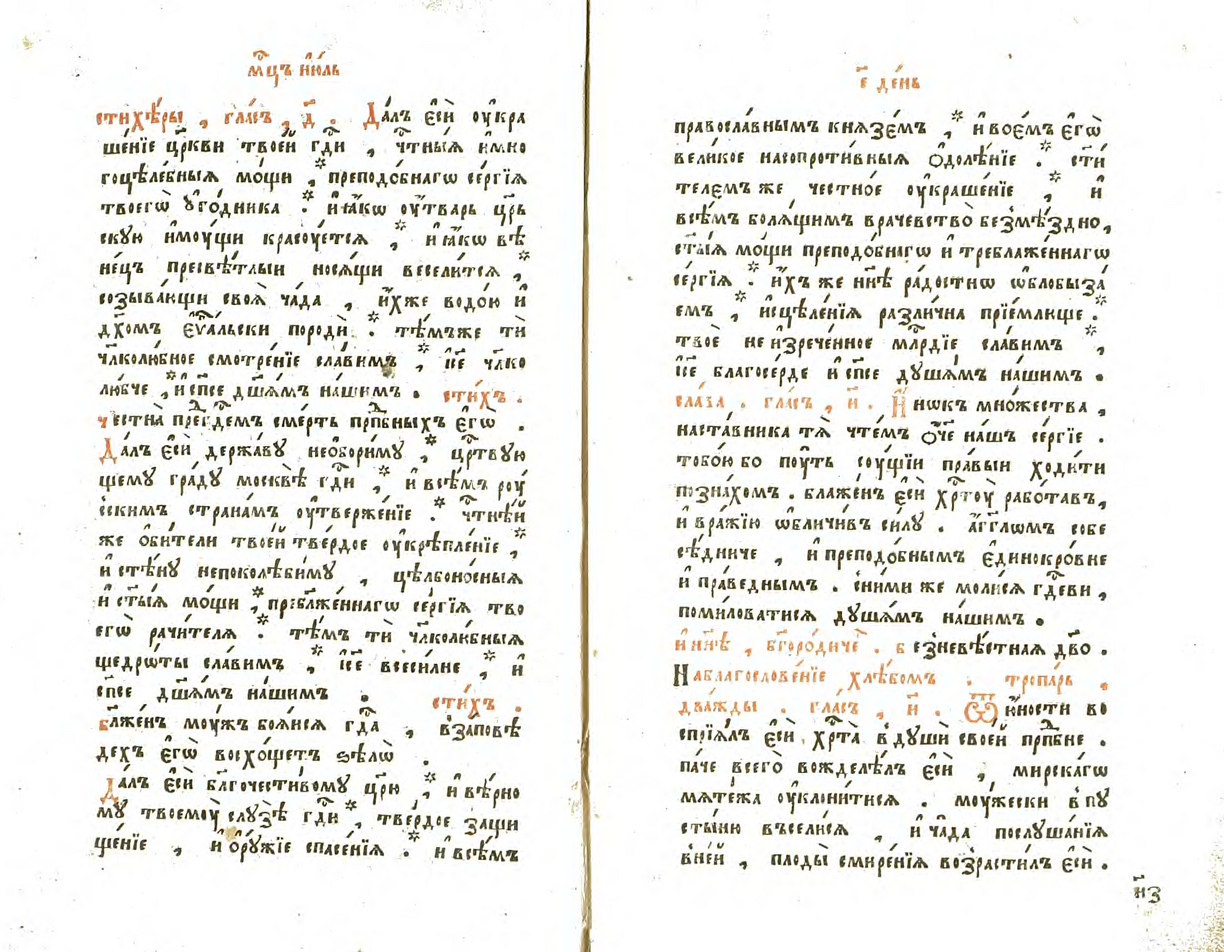 мⷭ҇цъ і҆ю́ль
стихѣ́ры , гла́съ , д҃ . Да́лъ є҆сѝ ᲂу҆кра
ше́нїе цр҃кви твое́й гдⷭ҇и , чтⷭ҇ны́ѧ и҆ мно
гоцѣле́бныѧ мо́щи ,* преподо́бнагѡ се́ргїѧ
твоегѡ̀ ᲂу҆го́дника .* и҆ ꙗ҆́кѡ ᲂу҆́тварь црⷭ҇
скую и҆мᲂу́щи красᲂу́етсѧ ,* и҆ ꙗ҆́кѡ вѣ
не́цъ пресвѣ́тлыи носѧ́щи весели́тсѧ ,*
созыва́ющи своѧ̀ ча́да , и҆́хже водо́ю и҆
дх҃омъ є҆ѵⷢ҇альски породѝ .* тѣ́мъже тѝ
чл҃колю́бное смотре́нїе сла́вимъ ,* і҆с҃е чл҃ко
лю́бче ,* и҆ сп҃се дш҃а́мъ на́шимъ . сти́хъ .
честна̀ преⷣгдⷭ҇емъ сме́рть прпⷣбныхъ є҆гѡ̀ .
Да́лъ є҆сѝ держа́вꙋ неѡбори́мꙋ ,* црⷭ҇твꙋю
щемꙋ гра́дꙋ москвѣ̀ гдⷭ҇и ,* и҆ всѣ́мъ рᲂу́
сскимъ страна́мъ ᲂу҆твержє́нїе .* чтⷭ҇нѣ́й
же ѻ҆би́тели твое́й тве́рдое ᲂу҆крѣпле́нїе ,*
и҆ стѣ́нꙋ непоколѣби́мꙋ , цѣльбоно́сныѧ
и҆ ст҃ы́ѧ мо́щи ,* пребл҃же́ннагѡ се́ргїѧ тво
егѡ̀ рачи́телѧ .* тѣ́мъ тѝ чл҃колю́бныѧ
щедрѡ́ты сла́вимъ ,* і҆с҃е всеси́лне ,* и҆
сп҃се дш҃а́мъ на́шимъ . сти́хъ .
бл҃же́нъ мᲂу́жъ боѧ́исѧ гдⷭ҇а , в̾за́повѣ
дехъ є҆гѡ̀ восхо́щетъ ѕѣлѡ̀ .
Да́лъ є҆сѝ бл҃гочести́вомꙋ црю̀ ,* и҆ вѣ́рно
мꙋ твоемᲂу̀ слꙋзѣ̀ гдⷭ҇и ,* тве́рдое защи
ще́нїе , и҆ ѻ҆рꙋ́жїе спасе́нїѧ .* и҆ всѣ́мъ
є҃ де́нь
правосла́внымъ кнѧзе́мъ ,* и҆ вое́мъ є҆гѡ̀
вели́кое насопроти́вныѧ ѡ҆долѣ́нїе .* ст҃и́
телемъ же че́стно́е ᲂу҆краше́нїе ,* и҆
всѣ́мъ болѧ́щимъ врачевство̀ безмѣ́здно ,
ст҃ы́ѧ мо́щи преподо́бнагѡ и҆ треблаже́ннагѡ
се́ргїѧ .* и҆́хъ же нн҃ѣ ра́достнѡ ѡ҆блобыза́
емъ ,* и҆сцѣле́нїѧ разли́чна прїе́млюще .*
твоѐ неи҆зрече́нное млⷭ҇рдїе сла́вимъ ,*
і҆с҃е благосе́рде и҆ сп҃се дꙋша́мъ на́шимъ .
сла́ва . гла́съ , и҃ . И҆́нокъ мно́жества ,
наста́вника тѧ̀ чте́мъ ѻ҆́ч҃е на́шъ се́ргїе .
тобо́ю бо пᲂу́ть сᲂу́щїи пра́выи ходи́ти
позна́хомъ . блаже́нъ є҆сѝ хрⷭ҇тᲂу̀ рабо́тавъ ,
и҆ вра́жїю ѡ҆бличи́въ си́лꙋ . а҆́гг҃лѡмъ собе
сѣ́дниче , и҆ преподо́бнымъ є҆динокро́вне
и҆ пра́веднымъ . сни́ми же моли́сѧ гдⷭ҇еви ,
поми́ловатисѧ дꙋша́мъ на́шимъ .
и҆ нн҃ѣ , бг҃оро́диченъ . безневѣ́стнаѧ дв҃о .
Наблагослове́нїе хлѣ́бомъ . тропа́рь ,
два́жды . гла́съ , и҃ . Ѿ ю҆́ности во
спрїѧ́лъ є҆сѝ , хрⷭ҇та̀ в̾дꙋшѝ свое́й прпⷣбне .
па́че всегѡ̀ вожделѣ́лъ є҆сѝ , мирска́гѡ
мѧте́жа ᲂу҆клони́тисѧ . мᲂу́жески в̾пꙋ
сты́ню въсели́сѧ , и҆ ча́да послꙋша́нїѧ
в̾не́й , плоды̀ смире́нїѧ возрасти́лъ є҆сѝ .
н҃з